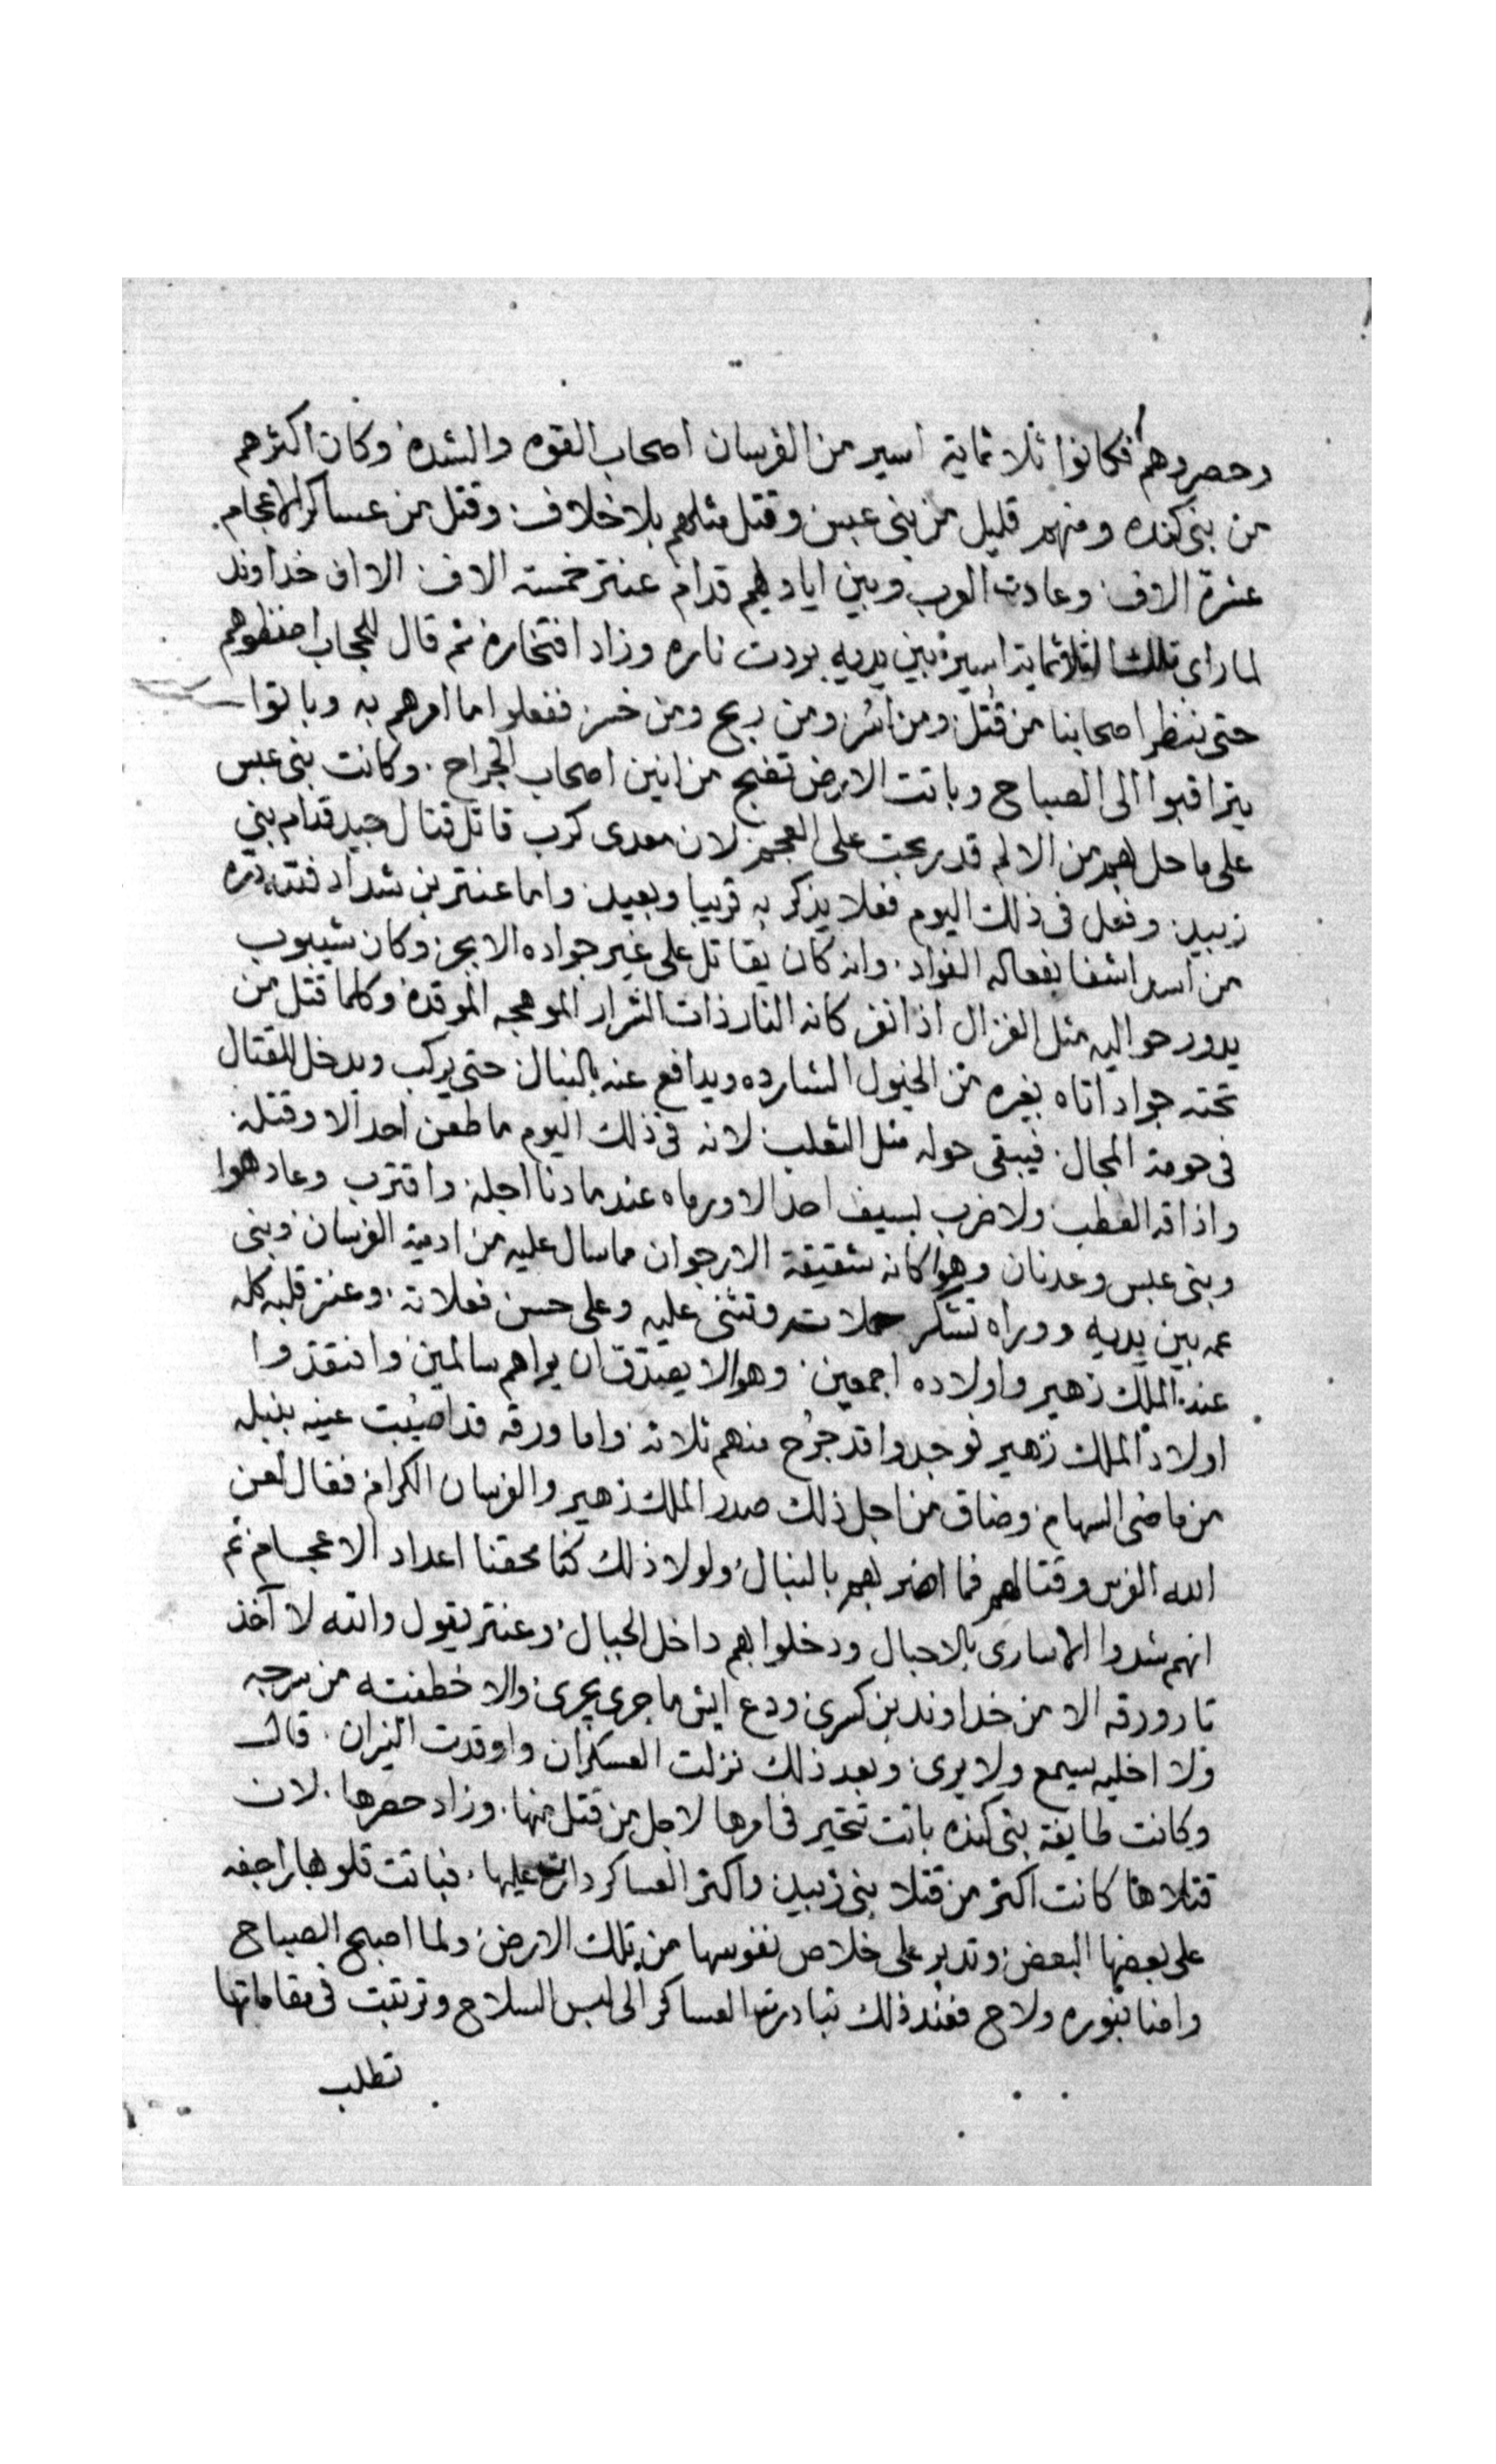 وحصروهم فكانوا ثلاثماية اسير من الفرسان اصحاب القوه والشده وكان اكثرهم
من بنى كنده ومنهم قليل من بنى عبس وقتل مثلهم بلا خلاف وقتل من عساكر الاعجام
عشرة الاف وعادت العرب وبين اياديهم قدام عنتر خمسته الاف الا ان خداوند
لما راى تلك الثلاثماية اسير بين يديه بردت ناره وزاد افتخاره ثم قال للحجاب احفظوهم
حتى ننظر اصحابنا من قتل ومن اسر ومن ربح ومن خسر ففعلوا ما امرهم به وباتوا
يتراقبوا الى الصباح وباتت الارض تضج من انين اصحاب الجراح. وكانت بنى عبس
على ما حل بهم من الالم قد ربحت على العجم لان معدى كرب قاتل قتال جيد قدام بنى
زبيد وفعل فى ذلك اليوم فعلا يذكر به قريبا وبعيد واما عنتر بن شداد فلله دره
من اسد اشفا بفعاله الفواد. وانه كان يقاتل على غير جواده الابجر وكان شيبوب
يدور حواليه مثل الغزال اذا نفر كانه النار ذات الشرار الموهجه الموقده وكلما قتل من
تحته جواد اتاه بغيره من الخيول الشارده ويدافع عنه بالنبال حتى يركب ويدخل للقتال
فى حومة المجال. فيبقى حوله مثل الثعلب لانه فى ذلك اليوم ما طعن احد الا وقتله
واذاقه العطب ولا ضرب بسيف احد الا ورماه عندما دنا اجله واقترب وعاد هوا
وبنى عبس وعدنان وهوا كانه شقيقة الارجوان مما سال عليه من ادمية الفرسان وبنى
عمه بين يديه ووراه تشكر حملاته وتثنى عليه وعلى حسن فعلاته. وعنتر قلبه كله
عند الملك زهير واولاده اجمعين. وهوا لا يصدق ان يراهم سالمين وافتقدوا
اولاد الملك زهير فوجدوا قد جرح منهم ثلاثه واما ورقه قد اصيبت عينه بنبله
من ماضى السهام وضاق من اجل ذلك صدر الملك زهير والفرسان الكرام فقال لعن
الله الفرس وقتالهم فما اضربهم بالنبال ولولا ذلك كنا محقنا اعداد الاعجام ثم
انهم شدوا الاسارى بالاحبال ودخلوا بهم داخل الجبال. وعنتر يقول والله لا آخذ
تار ورقه الا من خداوند بن كسرى ودع ايش ما جرى يجرى والا خطفته من سرجه
ولا اخليه يسمع ولا يرى وبعد ذلك نزلت العسكران واوقدت النيران. قال
وكانت طايفة بنى كنده باتت تتحير فى امرها لاجل من قتل منها. وزاد حصرها. لان
قتلاها كانت اكثر من قتلا بنى زبيد واكثر العساكر دارت عليها. فباتت قلوبها راجفه
على بعضها البعض وتدبر على خلاص نفوسها من تلك الارض ولما اصبح الصباح
واضا بنوره ولاح فعند ذلك تبادرت العساكر الى لبس السلاح وترتبت فى مقاماتها
تطلب